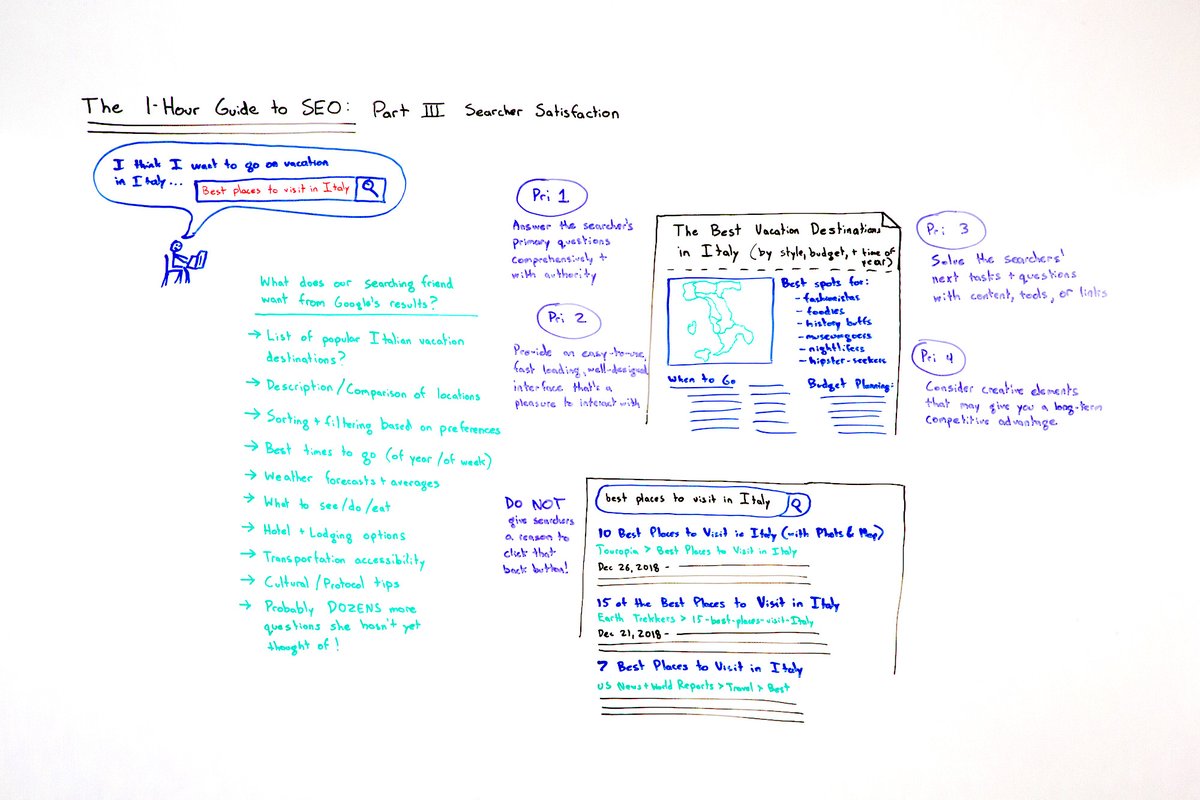 The 1-Hour Guide to SEO: Part III Searcher Satisfaction
I think I want to go on vacation
in Italy...
Best places to visit in Italy
What does our searching friend
want from Google's results?
→ List of popular Italian vacation
destinations?
→ Description/Comparison of locations
→ Sorting + filtering based on preferences
→ Best times to go (of year/of week)
→ Weather forecasts + averages
→ What to see/do/eat
→ Hotel + Lodging options
→ Transportation accessibility
→ Cultural/Protocol tips
→ Probably DOZENS more
questions she hasn't yet
thought of!
Pri 1
Answer the searcher's
primary questions
comprehensively +
with authority
Pri 2
Provide an easy-to-use,
fast loading, well-designed
interface that's a
pleasure to interact with
The Best Vacation Destinations
in Italy (by style, budget, + time of
year)
Best spots for:
- fashionistas
- foodies
- history buffs
- museumgoers
- nightlifers
- hipster-seekers
When to Go
Budget Planning:
Pri 3
Solve the searchers'
next tasks + questions
with content, tools, or links
Pri 4
Consider creative elements
that may give you a long-term
competitive advantage
DO NOT
give searchers
a reason to
click that
back button!
best places to visit in Italy
10 Best Places to Visit in Italy (with Photos & Map)
Touropia > Best Places to Visit in Italy
Dec 26, 2018 -
15 of the Best Places to Visit in Italy
Earth Trekkers > 15-best-places-visit-Italy
Dec 21, 2018 -
7 Best Places to Visit in Italy
US News + World Reports > Travel > Best